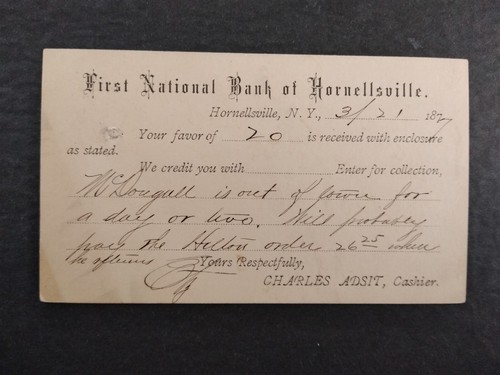 First National Bank of Hornellsville.
Hornellsville, N. Y., 3/21 1877
Your favor of 20 is received with enclosure
as stated.
We credit you with Enter for collection,
McDougall is out of town for
a day or two. Will probably
pay the Hilton order 26 25 when
he returns
Yours Respectfully,
CHARLES ADSIT, Cashier.